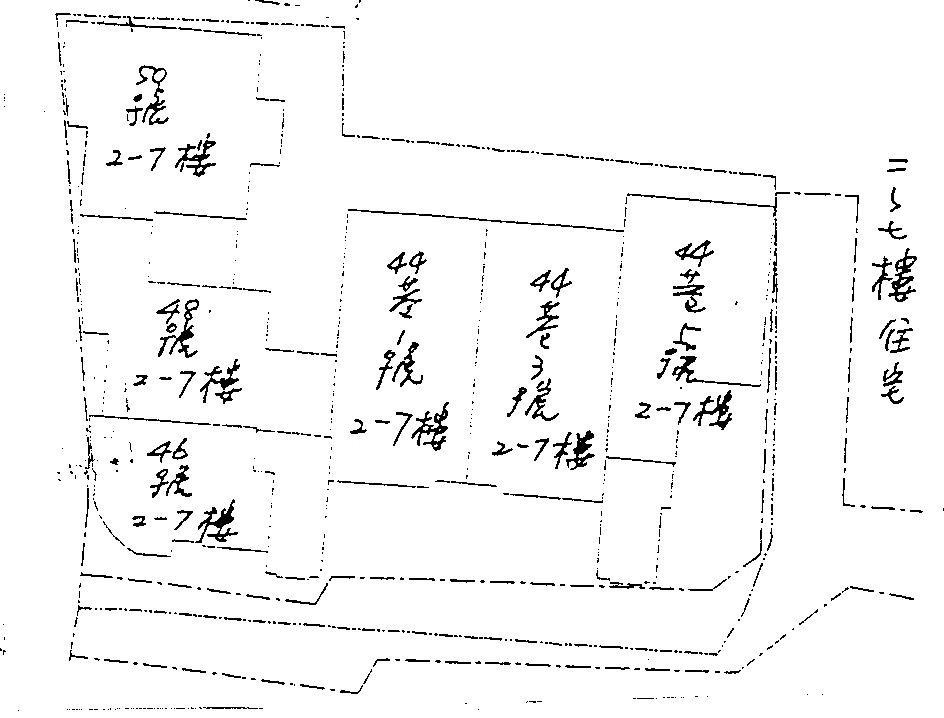 50
號
2-7樓
48
號
2-7樓
46
號
2-7樓
44
巷
1
號
2-7樓
44
巷
3
號
2-7樓
44
巷
5
號
2-7樓
二~七樓住宅